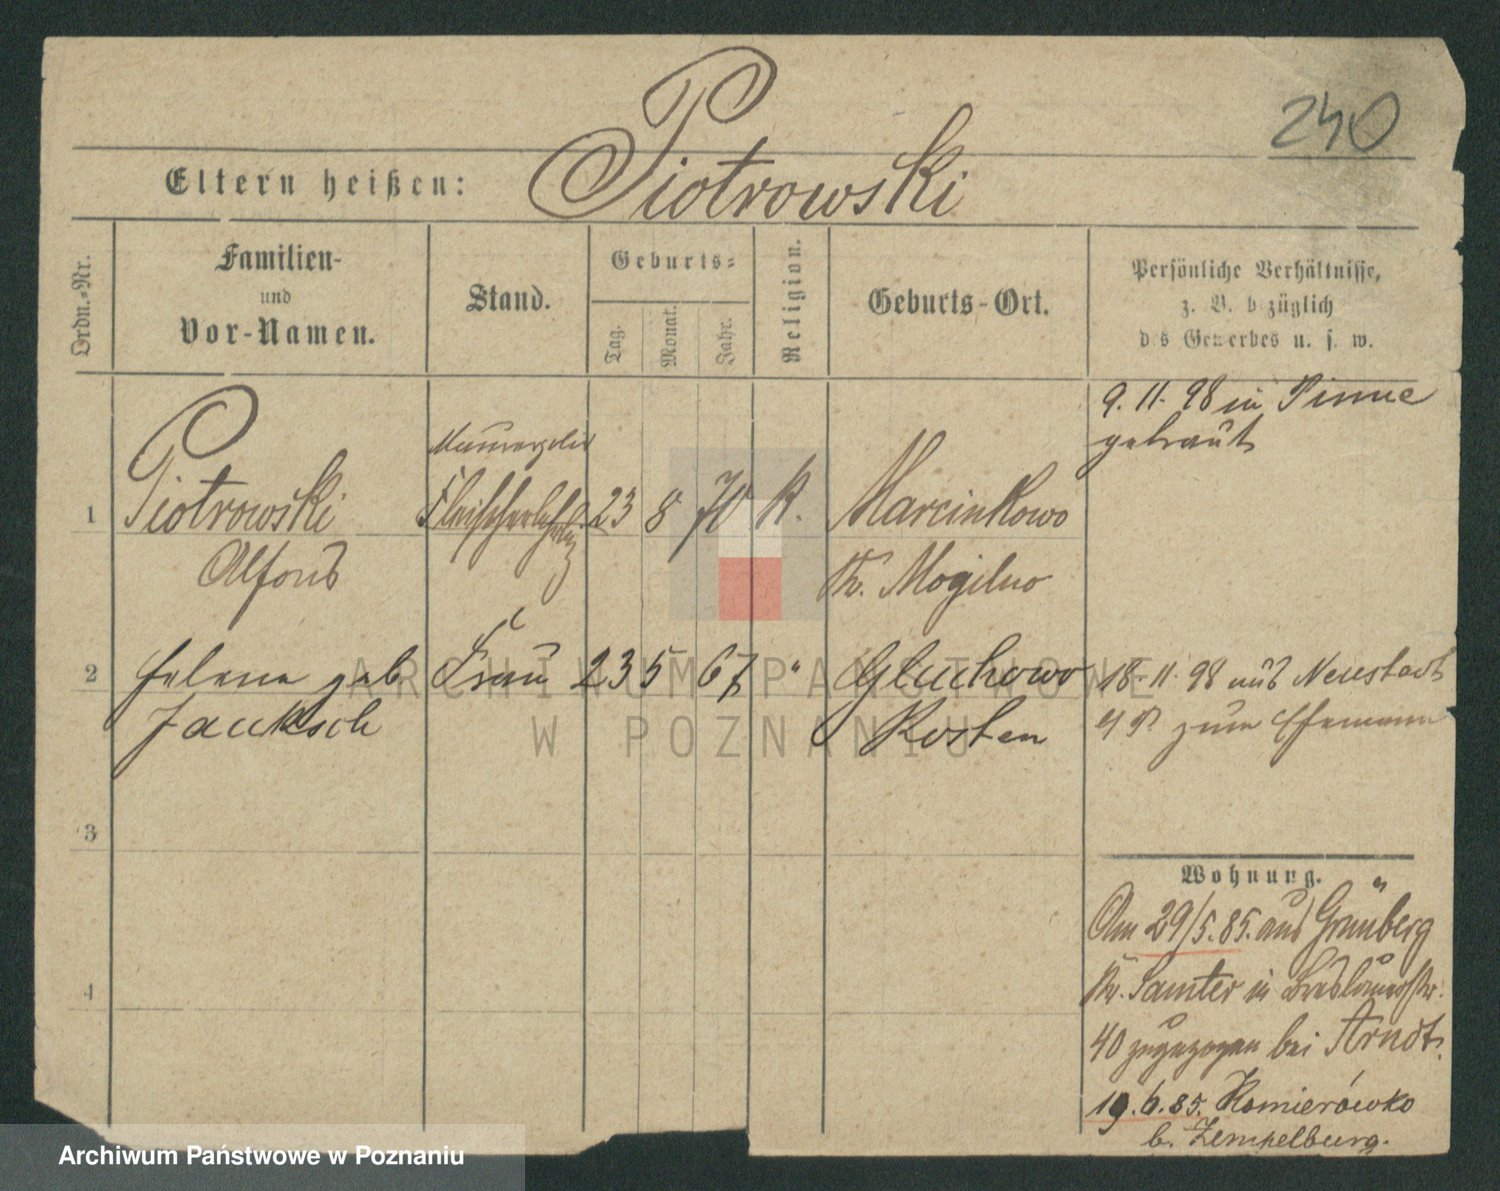 240
Piotrowski
Eltern heißen:
Ordn.-Nr.
Familien-
und
Vor-Namen.
Stand.
Geburts-
Tag.
Monat.
Jahr.
Religion.
Geburts-Ort.
Persönliche Verhältnisse,
z. B. bezüglich
des Gewerbes u. s. w.
9. 11. 98 in Pinne
getraut
1
Piotrowski
Alfons
Fleischerlehrling
23
8
70
k.
Marcinkowo
Kr. Mogilno
2
Helene geb
Jauksch
Frau
23
5
67
"
Gluchowo
Kosten
18-11. 98 aus Neustadt
zum Ehemann
3
4
Wohnung.
Am 29/5.85. aus Grünberg
Kr. Samter in Breslauerstr.
40 zugezogen bei Arndt.
19.6.85. Komierówko
b. Zempelburg.
ARCHIWUM PAŃSTWOWE
W POZNANIU
Archiwum Państwowe w Poznaniu